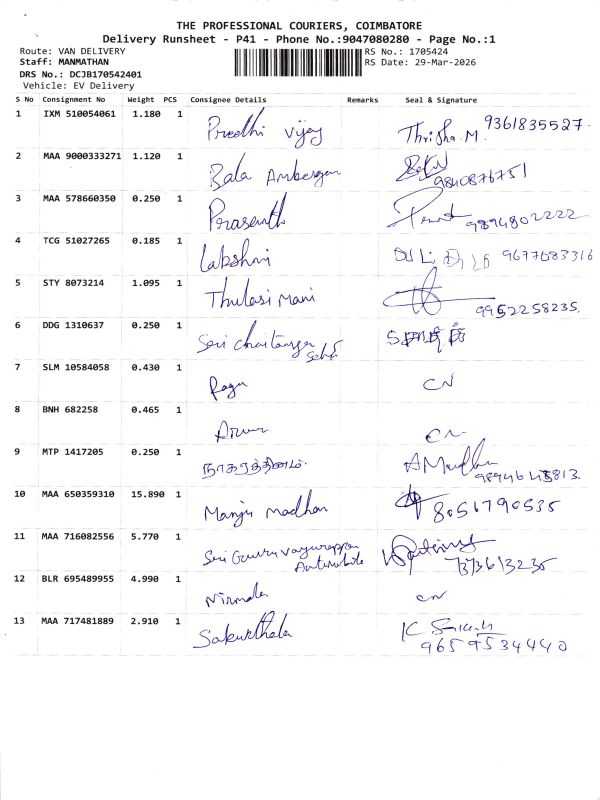 THE PROFESSIONAL COURIERS, COIMBATORE
Delivery Runsheet - P41 - Phone No.:9047080280 - Page No.:1
Route: VAN DELIVERY RS No.: 1705424
Staff: MANMATHAN RS Date: 29-Mar-2026
DRS No.: DCJB170542401
Vehicle: EV Delivery
S No Consignment No Weight PCS Consignee Details Remarks Seal & Signature
1 IXM 510054061 1.180 1 Preethi Vijay Thrisha M. 9361835527
2 MAA 9000333271 1.120 1 Bala 9840876751
3 MAA 578660350 0.250 1 Prasanth 9894802222
4 TCG 51027265 0.185 1 Lakshmi 9677683316
5 STY 8073214 1.095 1 Thulasi Mani 9952258235
6 DDG 1310637 0.250 1 Sri Chaitanya
7 SLM 10584058 0.430 1 Ragu CN
8 BNH 682258 0.465 1 Arun CN
9 MTP 1417205 0.250 1 நாகரத்தினம்
10 MAA 650359310 15.890 1 Manju Madhan 8056790535
11 MAA 716082556 5.770 1 Sri Guruvayurappa
12 BLR 695489955 4.990 1 Nirmala CN
13 MAA 717481889 2.910 1 Sakunthala K
9659534440